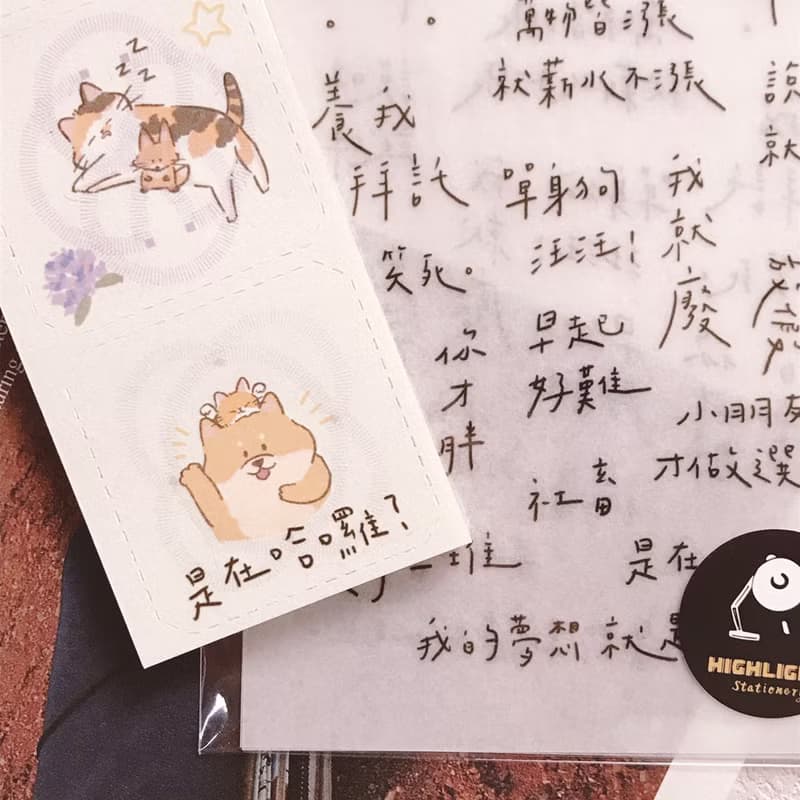 z z z
是在哈囉?
萬物皆漲
就薪水不漲
養我
拜託
單身狗
汪汪!
我就廢
笑死。
你才胖
早起
好難
小朋友
才做選
社畜
是在
我的夢想就是
說
就
HIGHLIGH
Stationery
aring